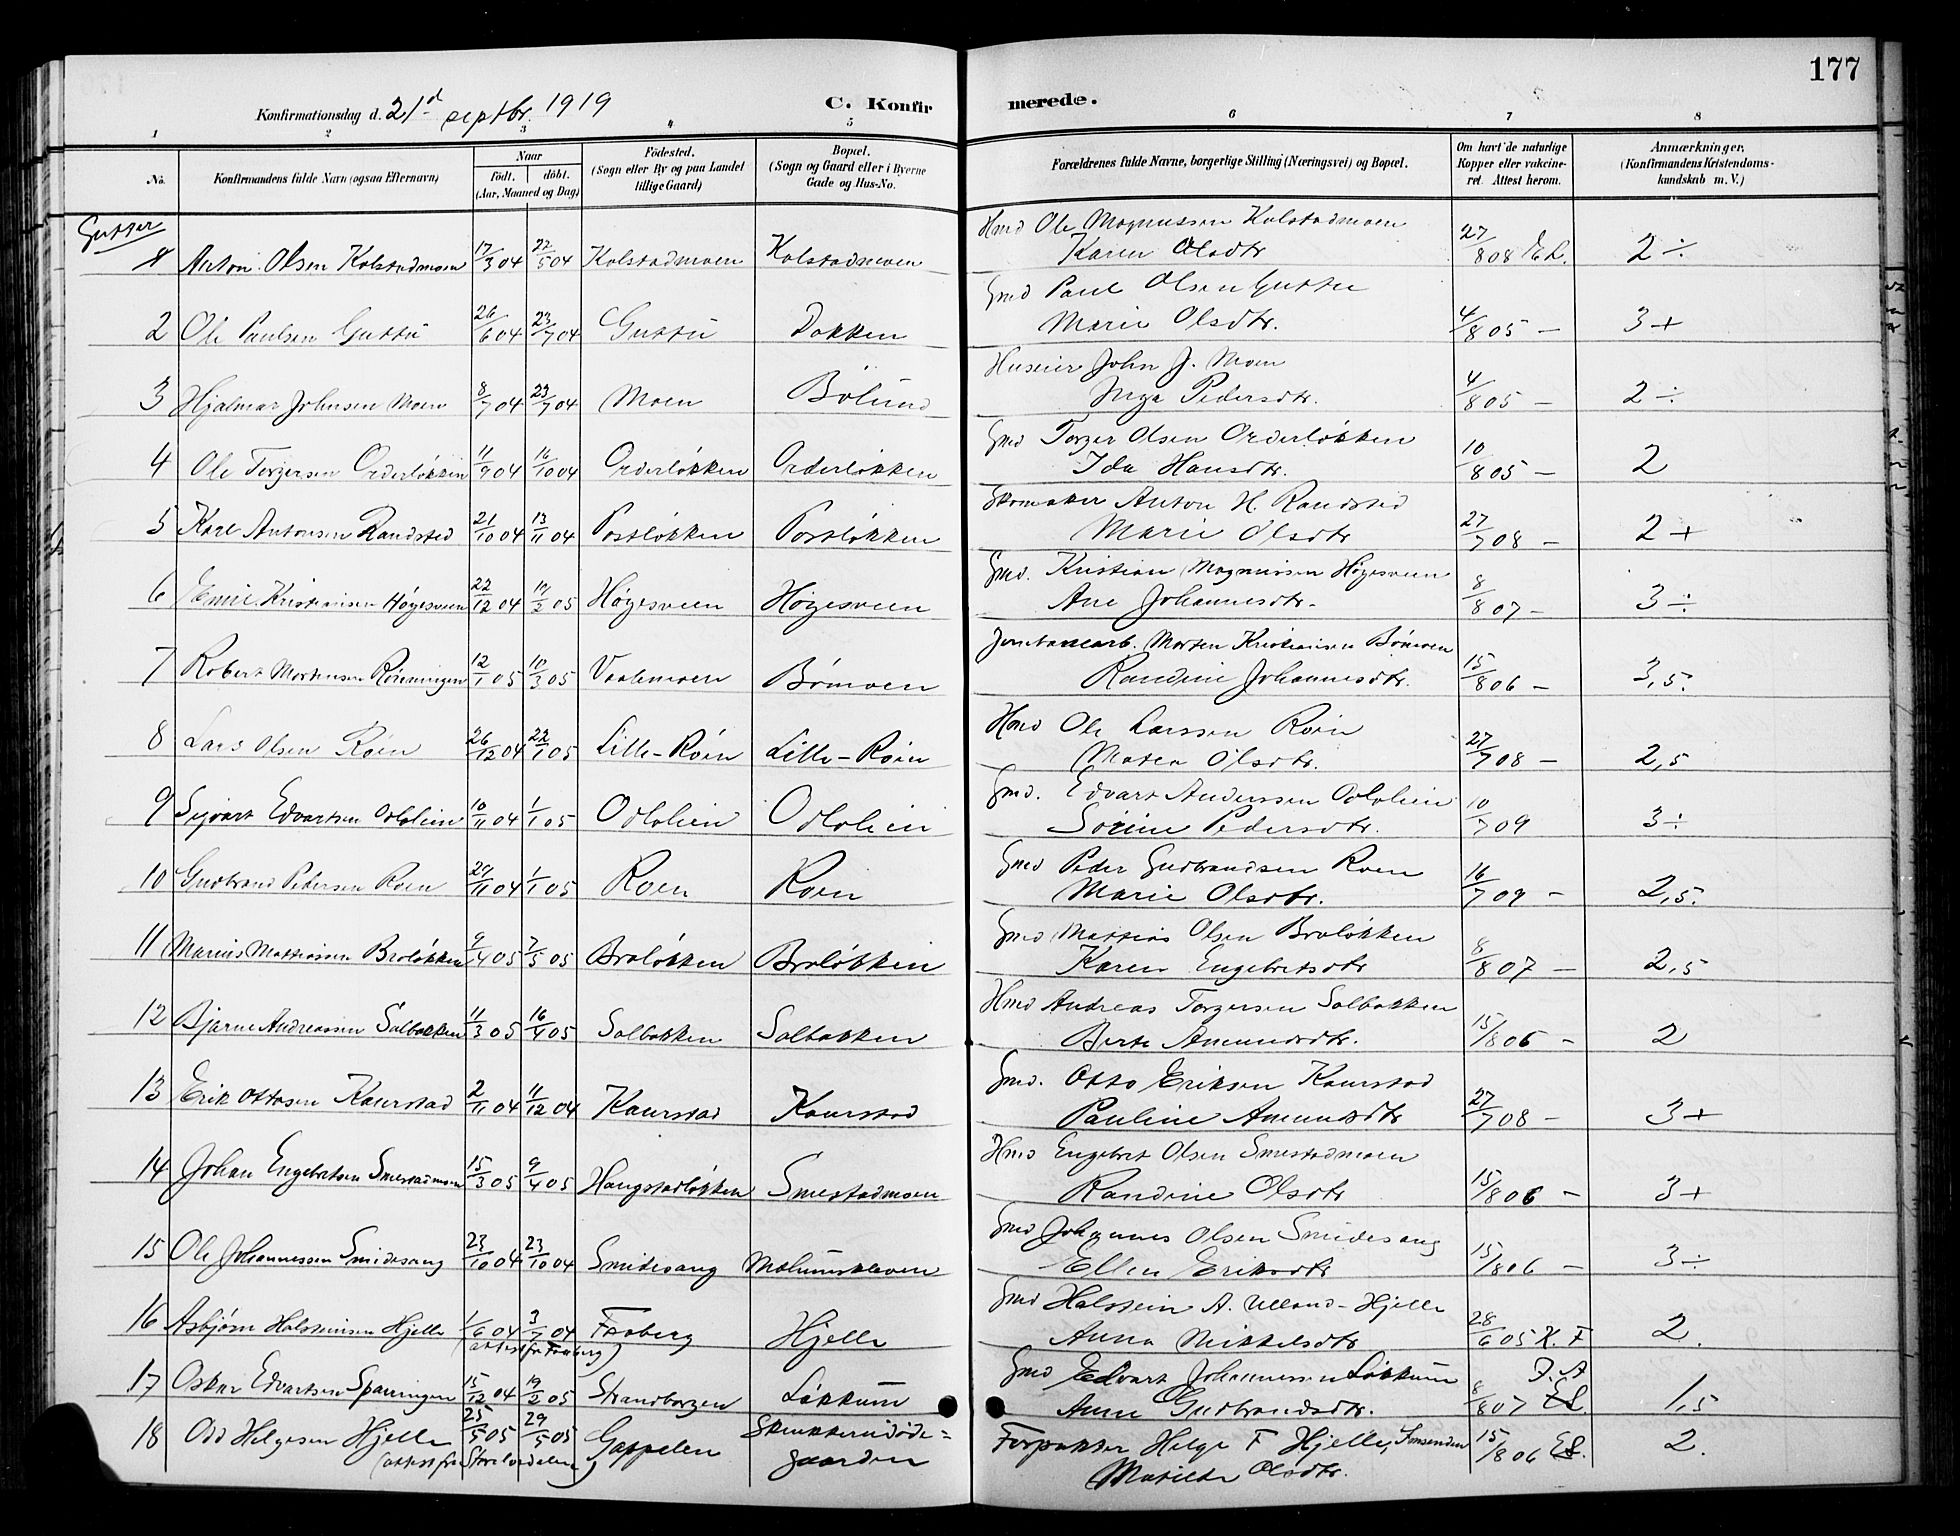 177
Konfirmationsdag d. 21d septbr. 1919 C. Konfirmerede.
1 2 3 4 5 6 7 8
No. Konfirmandens fulde Navn (ogsaa Efternavn) Naar født. døbt. (Aar, Maaned og Dag) Fødested. (Sogn eller By og paa Landet tillige Gaard) Bopæl. (Sogn og Gaard eller i Byerne Gade og Hus-No. Forældrenes fulde Navne, borgerlige Stilling (Næringsvei) og Bopæl. Om havt de naturlige Kopper eller vakcineret. Attest herom. Anmærkninger. (Konfirmandens Kristendomskundskab m. V.)
Gutter
1 Anton Olsen Kolstadmoen 17/3 04 22/5 04 Kolstadmoen Kolstadmoen Hmd Ole Magnussen Kolstadmoen
Karen Olsdtr 27/8 08 2 ÷
2 Ole Paulsen Guttu 26/6 04 23/7 04 Guttu Dokken Gmd Paul Olsen Guttu
Marie Olsdtr. 4/8 05 — 3 +
3 Hjalmar Johnsen Moen 8/7 04 23/7 04 Moen Bølund Huseier John J. Moen
Inga Pedersdtr. 4/8 05 — 2 ÷
4 Ole Torgersen Orderløkken 11/9 04 16/10 04 Orderløkken Orderløkken Gmd Torger Olsen Orderløkken
Ida Hansdtr. 10/8 05 — 2
5 Karl Antonsen Randsted 21/10 04 13/11 04 Postløkken Postløkken Skomaker Anton H. Randsted
Marie Olsdtr 27/7 08 — 2 +
6 Emil Kristiansen Høgesveen 22/12 04 /2 05 Høgesveen Høgesveen Gmd. Kristian Magnussen Høgesveen
Ane Johannesdtr. 8/8 07 — 3 ÷
7 Robert Mortensen 12/1 05 /3 05 Vaalemoen Bømoen Jernbanearb. Morten Kristiansen Bømoen
Randine Johannesdtr. 15/8 06 — 3,5.
8 Lars Olsen Roen 26/12 04 22/1 05 Lille-Roen Lille-Roen Hmd Ole Larssen Roen
Matea Olsdtr. 27/7 08 — 2,5
9 Sigvart Edvartsen Odlolien 10/11 04 1/1 05 Odlolien Odlolien Gmd. Edvart Anderssen Odlolien
Sørine Pedersdtr. 10/7 09 3 ÷
10 Gudbrand Pedersen Roen 27/11 04 1/1 05 Roen Roen Gmd Peder Gudbrandsen Roen
Marie Olsdtr. 16/7 09 — 2,5.
11 Marius Mattiassen Broløkken 9/4 05 7/5 05 Broløkken Broløkken Gmd Mattias Olsen Broløkken
Karen Engebretsdtr 8/8 07 — 2,5
12 Bjarne Andreassen Solbakken 11/3 05 16/4 05 Solbakken Solbakken Hmd Andreas Torgersen Solbakken
Berte Amundsdtr. 15/8 06 — 2
13 Erik Ottosen Kaurstad 2/11 04 11/12 04 Kaurstad Kaurstad Gmd. Otto Eriksen Kaurstad
Pauline Amundsdtr 27/7 08 — 3 +
14 Johan Engebretsen Smestadmoen 15/3 05 9/4 05 Haugstadløkken Smestadmoen Hmd Engebret Olsen Smestadmoen
Randine Olsdtr 15/8 06 — 3 +
15 Ole Johannessen Smidesang 23/10 04 23/10 04 Smidesang Gmd Johannes Olsen Smidesang
Ellen Eriksdtr 15/8 06 — 3 ÷
16 Asbjørn Halsteinsen Hjelle 1/6 04 3/7 04 Faaberg Hjelle Gmd Halstein A. Ulland-Hjelle
(attest fra Faaberg) Anna Mikkelsdtr 28/6 05 K. F 2.
17 Oskar Edvartsen Spanningen 15/12 04 19/2 05 Strandborgen Løkkum Gmd Edvart Johannessen Løkkum
Anne Gudbrandsdtr. 8/8 07 1,5
18 Odd Helgesen Hjelle 25/5 05 29/5 05 Goppelen gaarden Forpakter Helge F Hjelle,
(attest fra Storelvdalen) Matilde Olsdtr. 15/8 06 2.